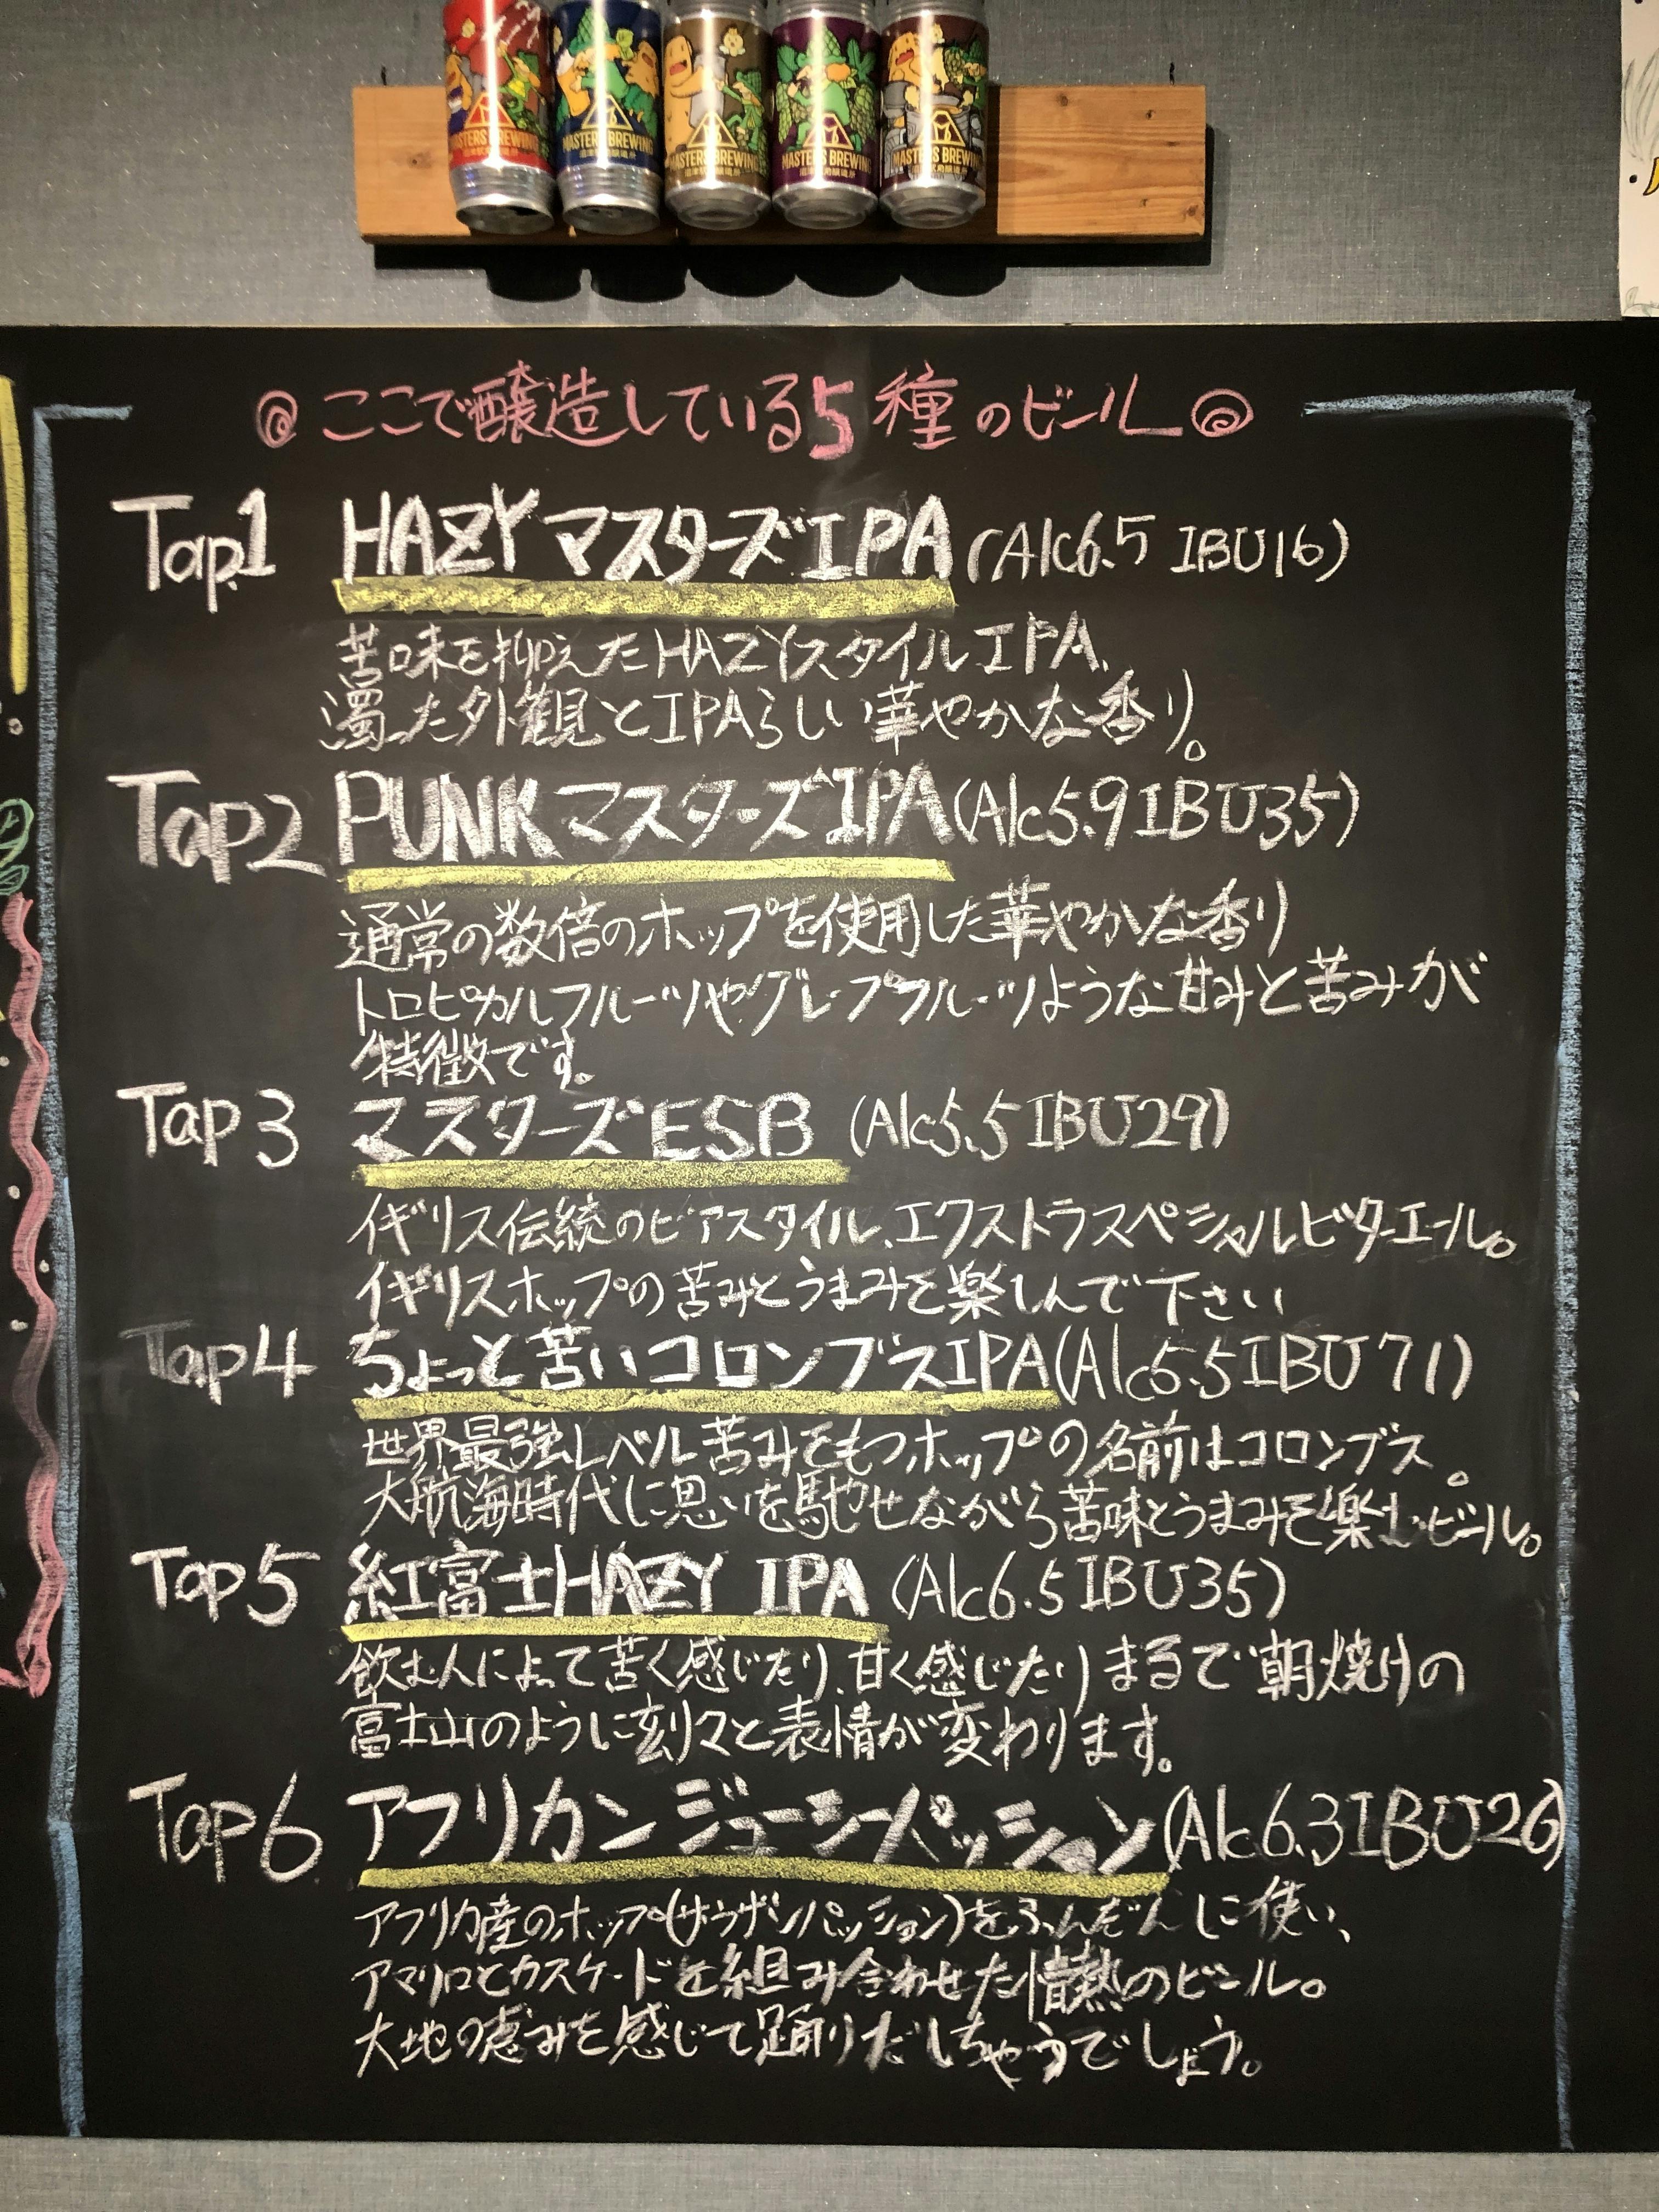 MASTERS BREWING
MASTERS BREWING
MASTERS BREWING
MASTERS BREWING
MASTERS BREWING
◎ここで醸造している5種のビール◎
Tap.1 HAZYマスターズIPA (Alc6.5 IBU16)
苦味を抑えたHAZYスタイルIPA、
濁った外観とIPAらしい華やかな香り。
Tap2 PUNKマスターズIPA(Alc5.9IBU35)
通常の数倍のホップを使用した華やかな香り
トロピカルフルーツやグレープフルーツような甘みと苦みが
特徴です。
Tap3 マスターズESB (Alc5.5IBU29)
イギリス伝統のビアスタイル、エクストラスペシャルビターエール。
イギリスホップの苦みとうまみを楽しんで下さい
Tap4 ちょっと苦いコロンブスIPA(Alc5.5IBU71)
世界最強レベル苦みをもつホップの名前はコロンブス。
大航海時代に思いを馳せながら苦味とうまみを楽しむビール。
Tap5 紅富士HAZY IPA (Alc6.5IBU35)
飲む人によって苦く感じたり、甘く感じたりまるで朝焼けの
富士山のように刻々と表情が変わります。
Tap6 アフリカンジューシーパッション(Alc6.3IBU26)
アフリカ産のホップ(サウザンパッション)をふんだんに使い、
アマリロとカスケードを組み合わせた情熱のビール。
大地の恵みを感じて踊りだしちゃうでしょう。